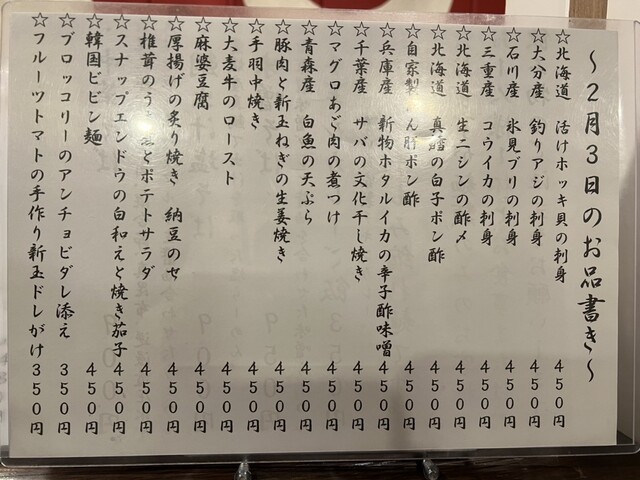 ～2月3日のお品書き～
☆北海道 活けホッキ貝の刺身 450円
☆大分産 釣りアジの刺身 450円
☆石川産 氷見ブリの刺身 450円
☆三重産 コウイカの刺身 450円
☆北海道 生ニシンの酢〆 450円
☆北海道 真鱈の白子ポン酢 450円
☆自家製 ん肝ポン酢 450円
☆兵庫産 新物ホタルイカの辛子酢味噌 450円
☆千葉産 サバの文化干し焼き 450円
☆マグロあご肉の煮つけ 450円
☆青森産 白魚の天ぷら 450円
☆豚肉と新玉ねぎの生姜焼き 450円
☆手羽中焼き 450円
☆大麦牛のロースト 450円
☆麻婆豆腐 450円
☆厚揚げの炙り焼き 納豆のせ 450円
☆椎茸のうま煮とポテトサラダ 450円
☆スナップエンドウの白和えと焼き茄子 450円
☆韓国ビビン麺 450円
☆ブロッコリーのアンチョビダレ添え 350円
☆フルーツトマトの手作り新玉ドレがけ 350円